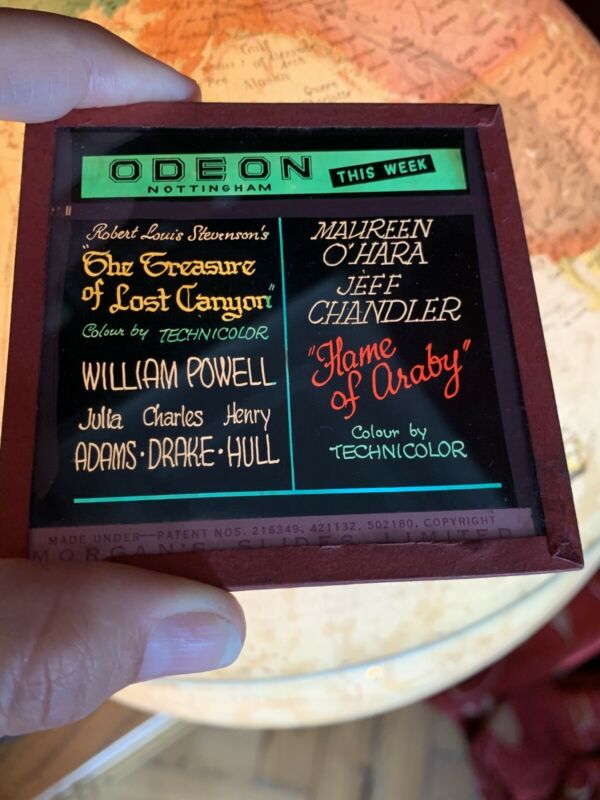 ODEON
NOTTINGHAM
THIS WEEK
Robert Louis Stevenson's
"The Treasure
of Lost Canyon"
Colour by TECHNICOLOR
WILLIAM POWELL
Julia Charles Henry
ADAMS · DRAKE · HULL
MAUREEN
O'HARA
JEFF
CHANDLER
"Flame
of Araby"
Colour by
TECHNICOLOR
MADE UNDER—PATENT NOS. 216349, 421132, 502180, COPYRIGHT
MORGAN'S SLIDES LIMITED